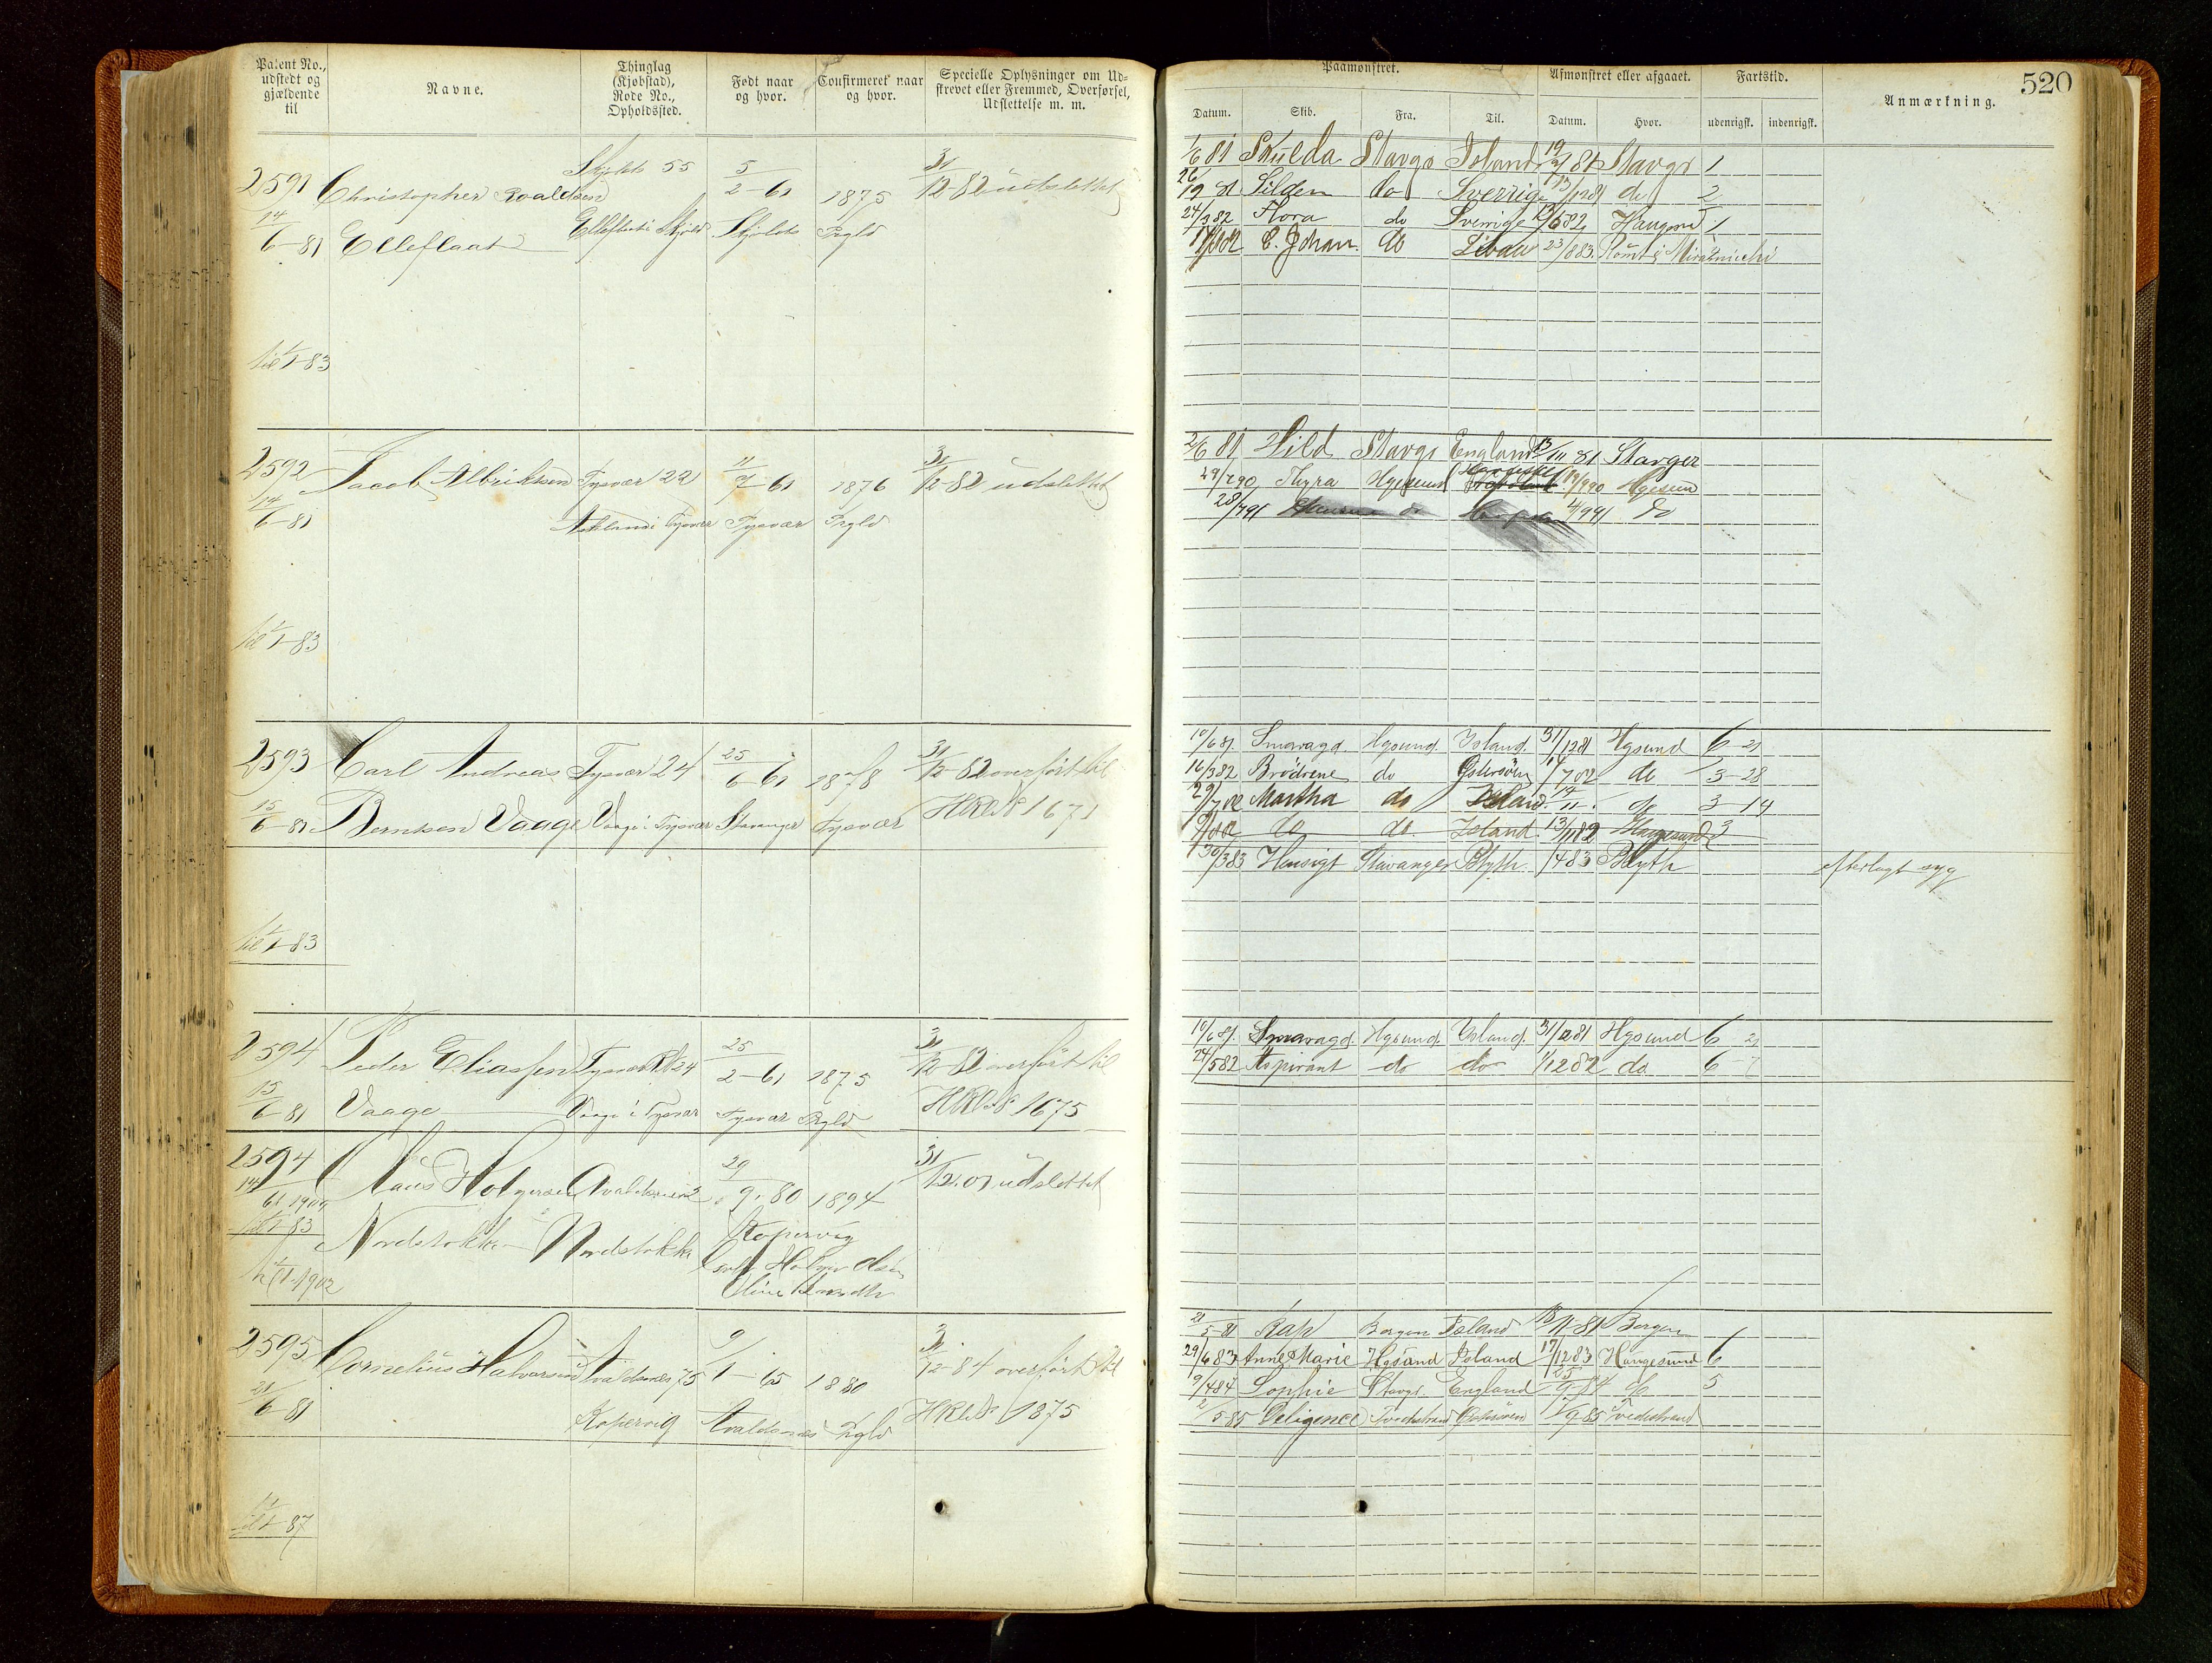 Patent No., udstedt og gjældende til
Navne.
Thinglag (Kjøbstad), Rode No., Opholdssted.
Født naar og hvor.
Confirmeret naar og hvor.
Specielle Oplysninger om Udskrevet eller Fremmed, Overførsel, Udslettelse m. m.
2591 Christopher Roaldsen Skjold 55 5/2-61 1875 31/12-82 udslettet
14/6-81 Elleflaat Elleflaat i Skjold Skjold Rgld
til 1/1-83
2592 Jacob Albriktsen Tysvær 22 11/9-61 1876 31/12-82 udslettet
14/6-81 Tysvær Tysvær Rgld
til 1/1-83
2593 Carl Andreas Tysvær 24 25/6-61 1878 31/12-82 overført til
15/6-81 Berntsen Vaage Vaage i Tysvær Stavanger Tysvær HRled No 1671
til 1/1-83
2594 Peder Eliassen Tysvær Rd 24 25/2-61 1875 31/12-82 overført til
15/6-81 Vaage Vaage i Tysvær Tysvær Rgld HRled No 1675
2594 Holgersen Avaldsnes 29/9-80 1894 31/12.01 udslettet
14/6 1900
til 1/1-83 Nordstokke Nordstokke Kopervig
til 1/1-1902
2595 Cornelius Halvorsen Avaldsnes 75 9/1-65 1880 31/12-84 overført til
21/6-81 Kopervig Avaldsnes Rgld HRled No 1875
til 1/1-87
520
Paamønstret. Afmønstret eller afgaaet. Fartstid.
Anmærkning.
Datum. Skib. Fra. Til. Datum. Hvor. udenrigsk. indenrigsk.
1/6 81 Skulda Stavgr Island Stavgr 1
Silden do Sverrige do 2
24/3 82 Flora do Sverrige 1
C. Johan do Libau 23/8 83 Rømt i Miramichi
2/6 81 Hild Stavgr England 13/11 81 Stavger
29/7 90 Thyra Hgesund 19/9 90 Hgesund
28/7 91 do 4/9 91 do
10/6 81. Smaragd. Hgsund. Island. 31/12 81 Hgsund 6-21
16/3 82 Brødrene do Østersøen do 3-28
29/7 82 Martha do Island do 3-14
do do. Island 13/11 82 Haugesund 3
30/3 83 Hensigt Stavanger Blyth /4 83 Blyth efterlagt syg
10/6 81. Smaragd. Hgsund. Island. 31/12 81 Hgsund 6 21
24/5 82 Aspirant do do 1/12 82 do 6-7
21/5-81 Rap Bergen Island 18/11-81 Bergen
29/6 83 Anne Marie Hgsund Island 17/12 83 Haugesund 6
9/4 84 Sophie Stavgr. England do 5
2/5 85 Deligence Tvedestrand Østersøen 1/9 85 Tvedestrand